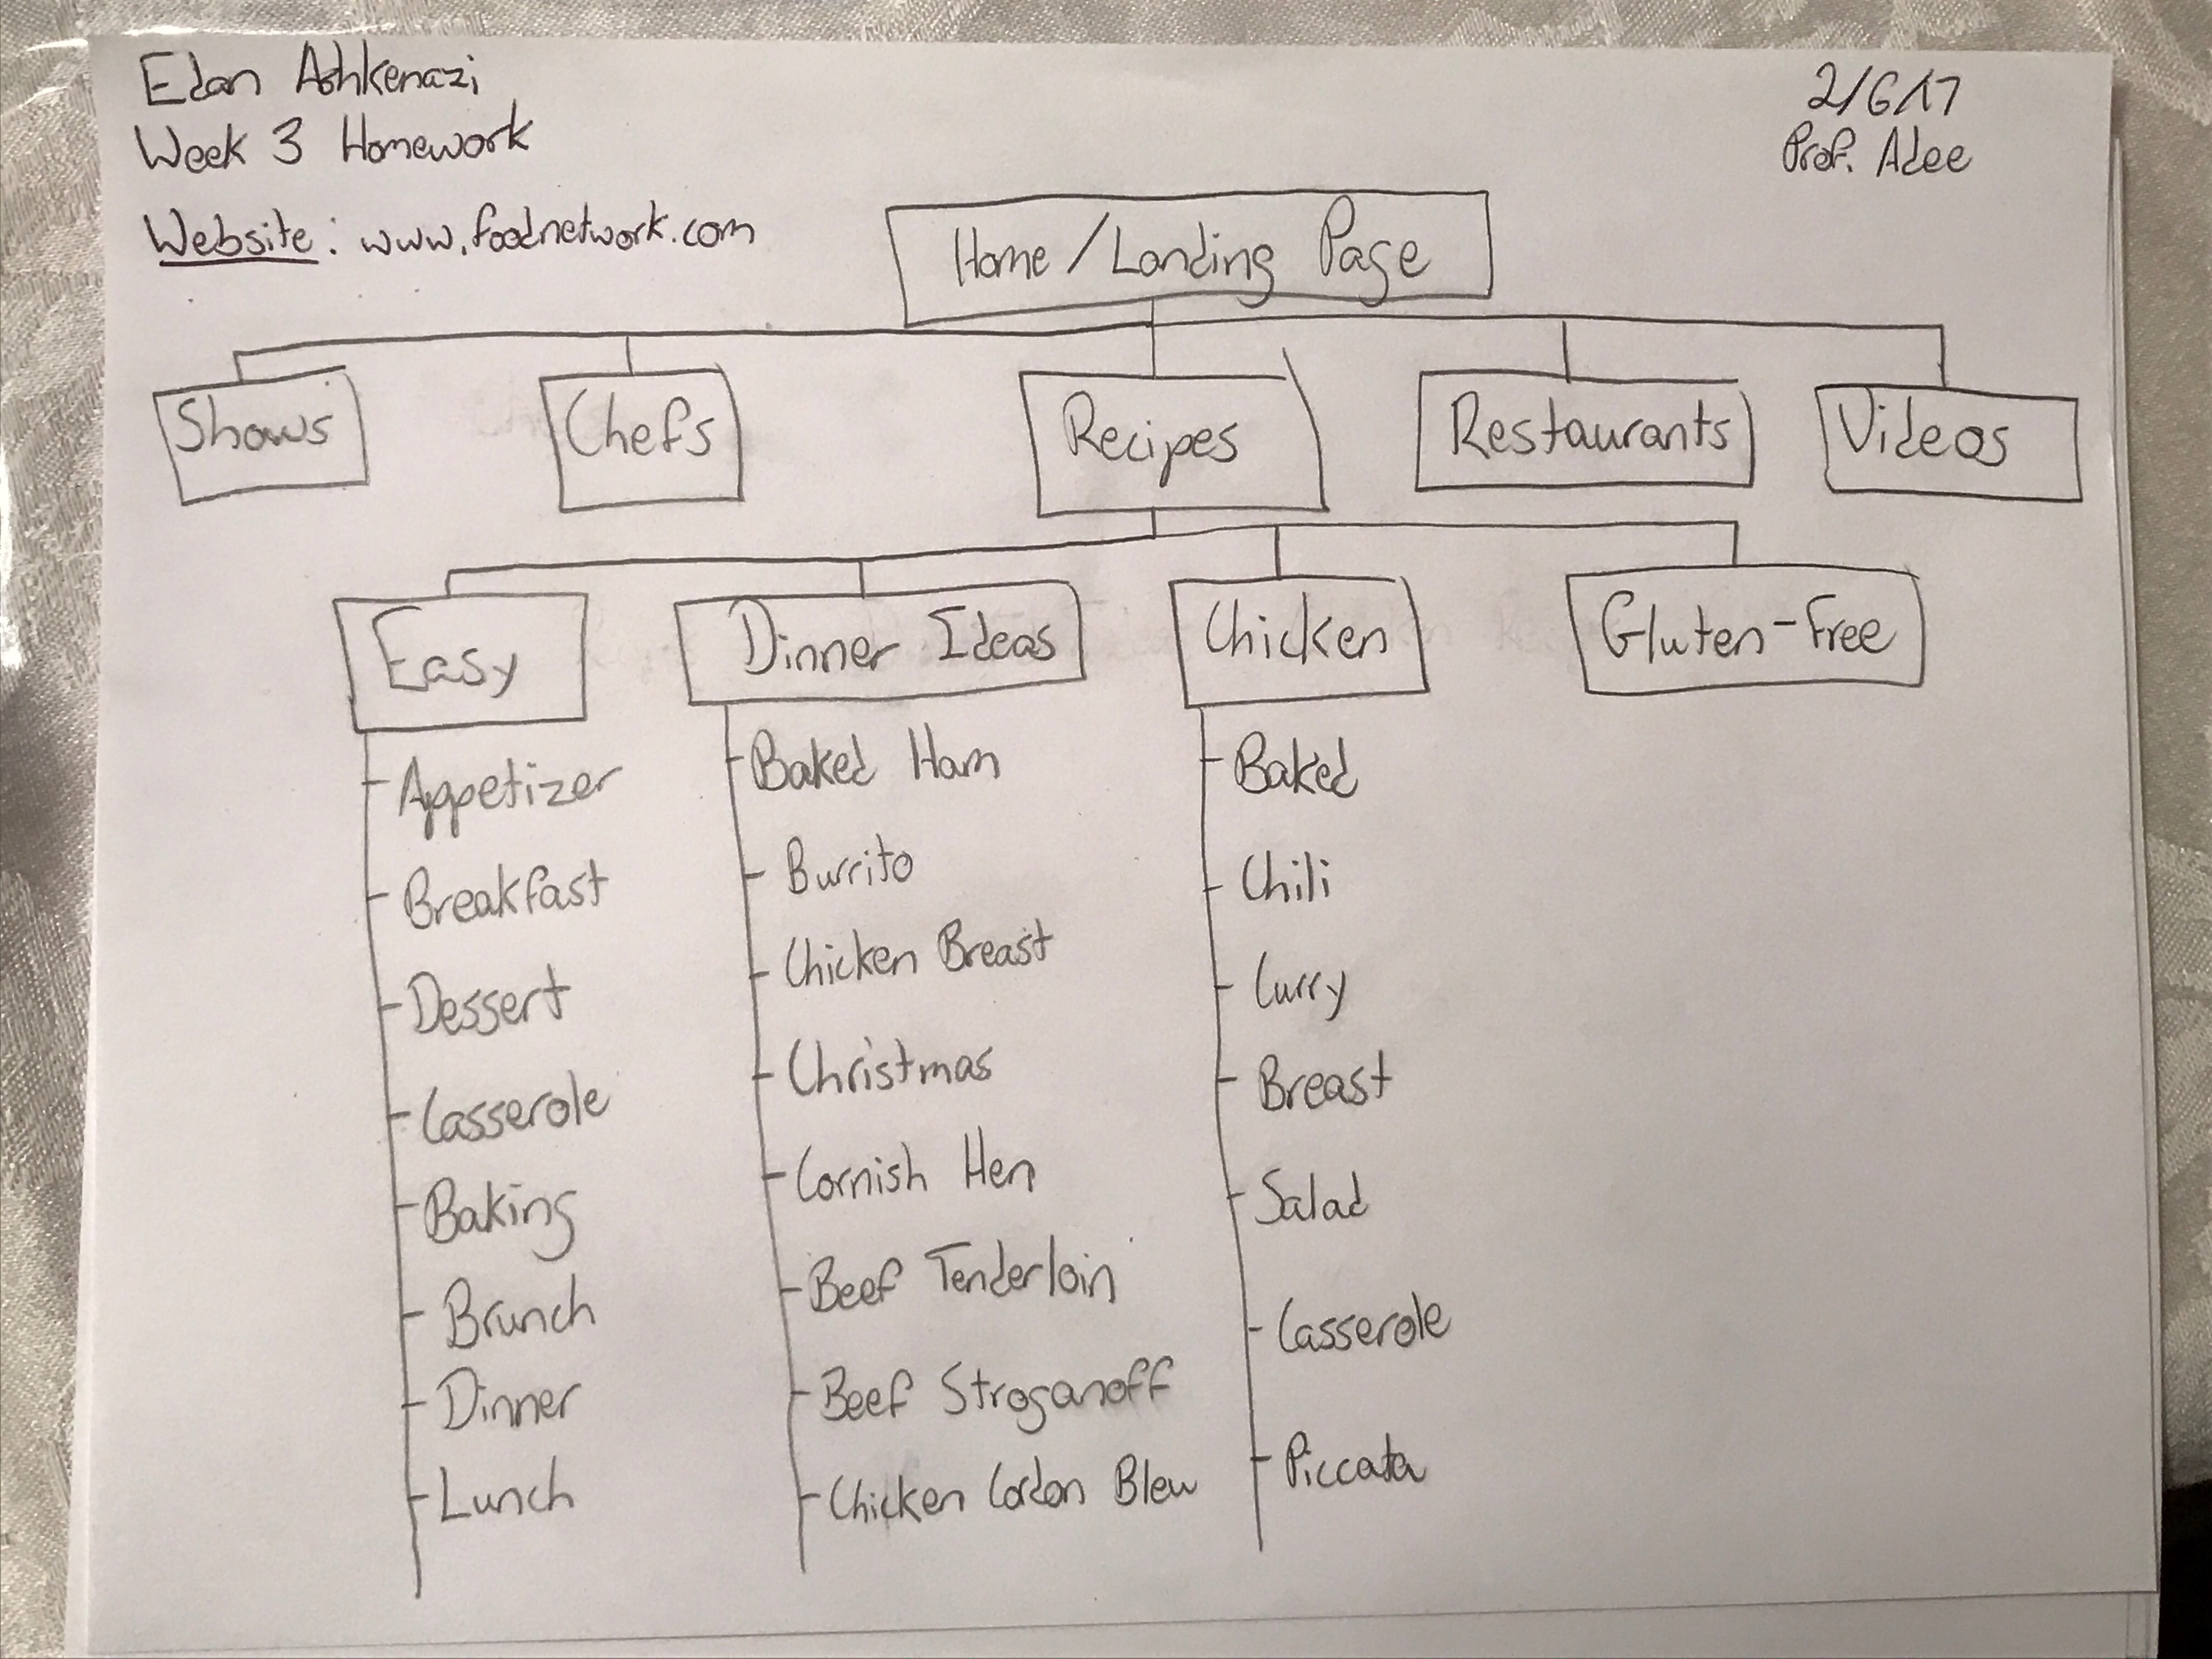 Edan Ashkenazi
Week 3 Homework
2/6/17
Prof. Adee
Website: www.foodnetwork.com
Home/Landing Page
Shows
Chefs
Recipes
Restaurants
Videos
Easy
Dinner Ideas
Chicken
Gluten-Free
Appetizer
Breakfast
Dessert
Casserole
Baking
Brunch
Dinner
Lunch
Baked Ham
Burrito
Chicken Breast
Christmas
Cornish Hen
Beef Tenderloin
Beef Stroganoff
Chicken Cordon Bleu
Baked
Chili
Curry
Breast
Salad
Casserole
Piccata